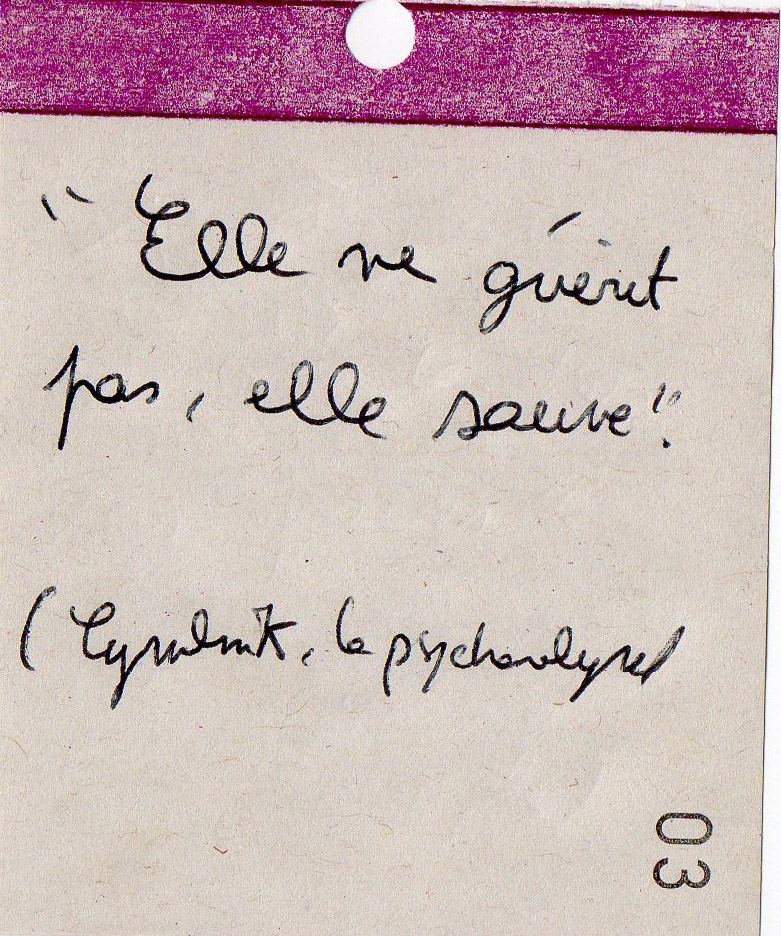 " Elle ne guérit
pas, elle sauve".
(Cyrulnik, la psychanalyse)
03